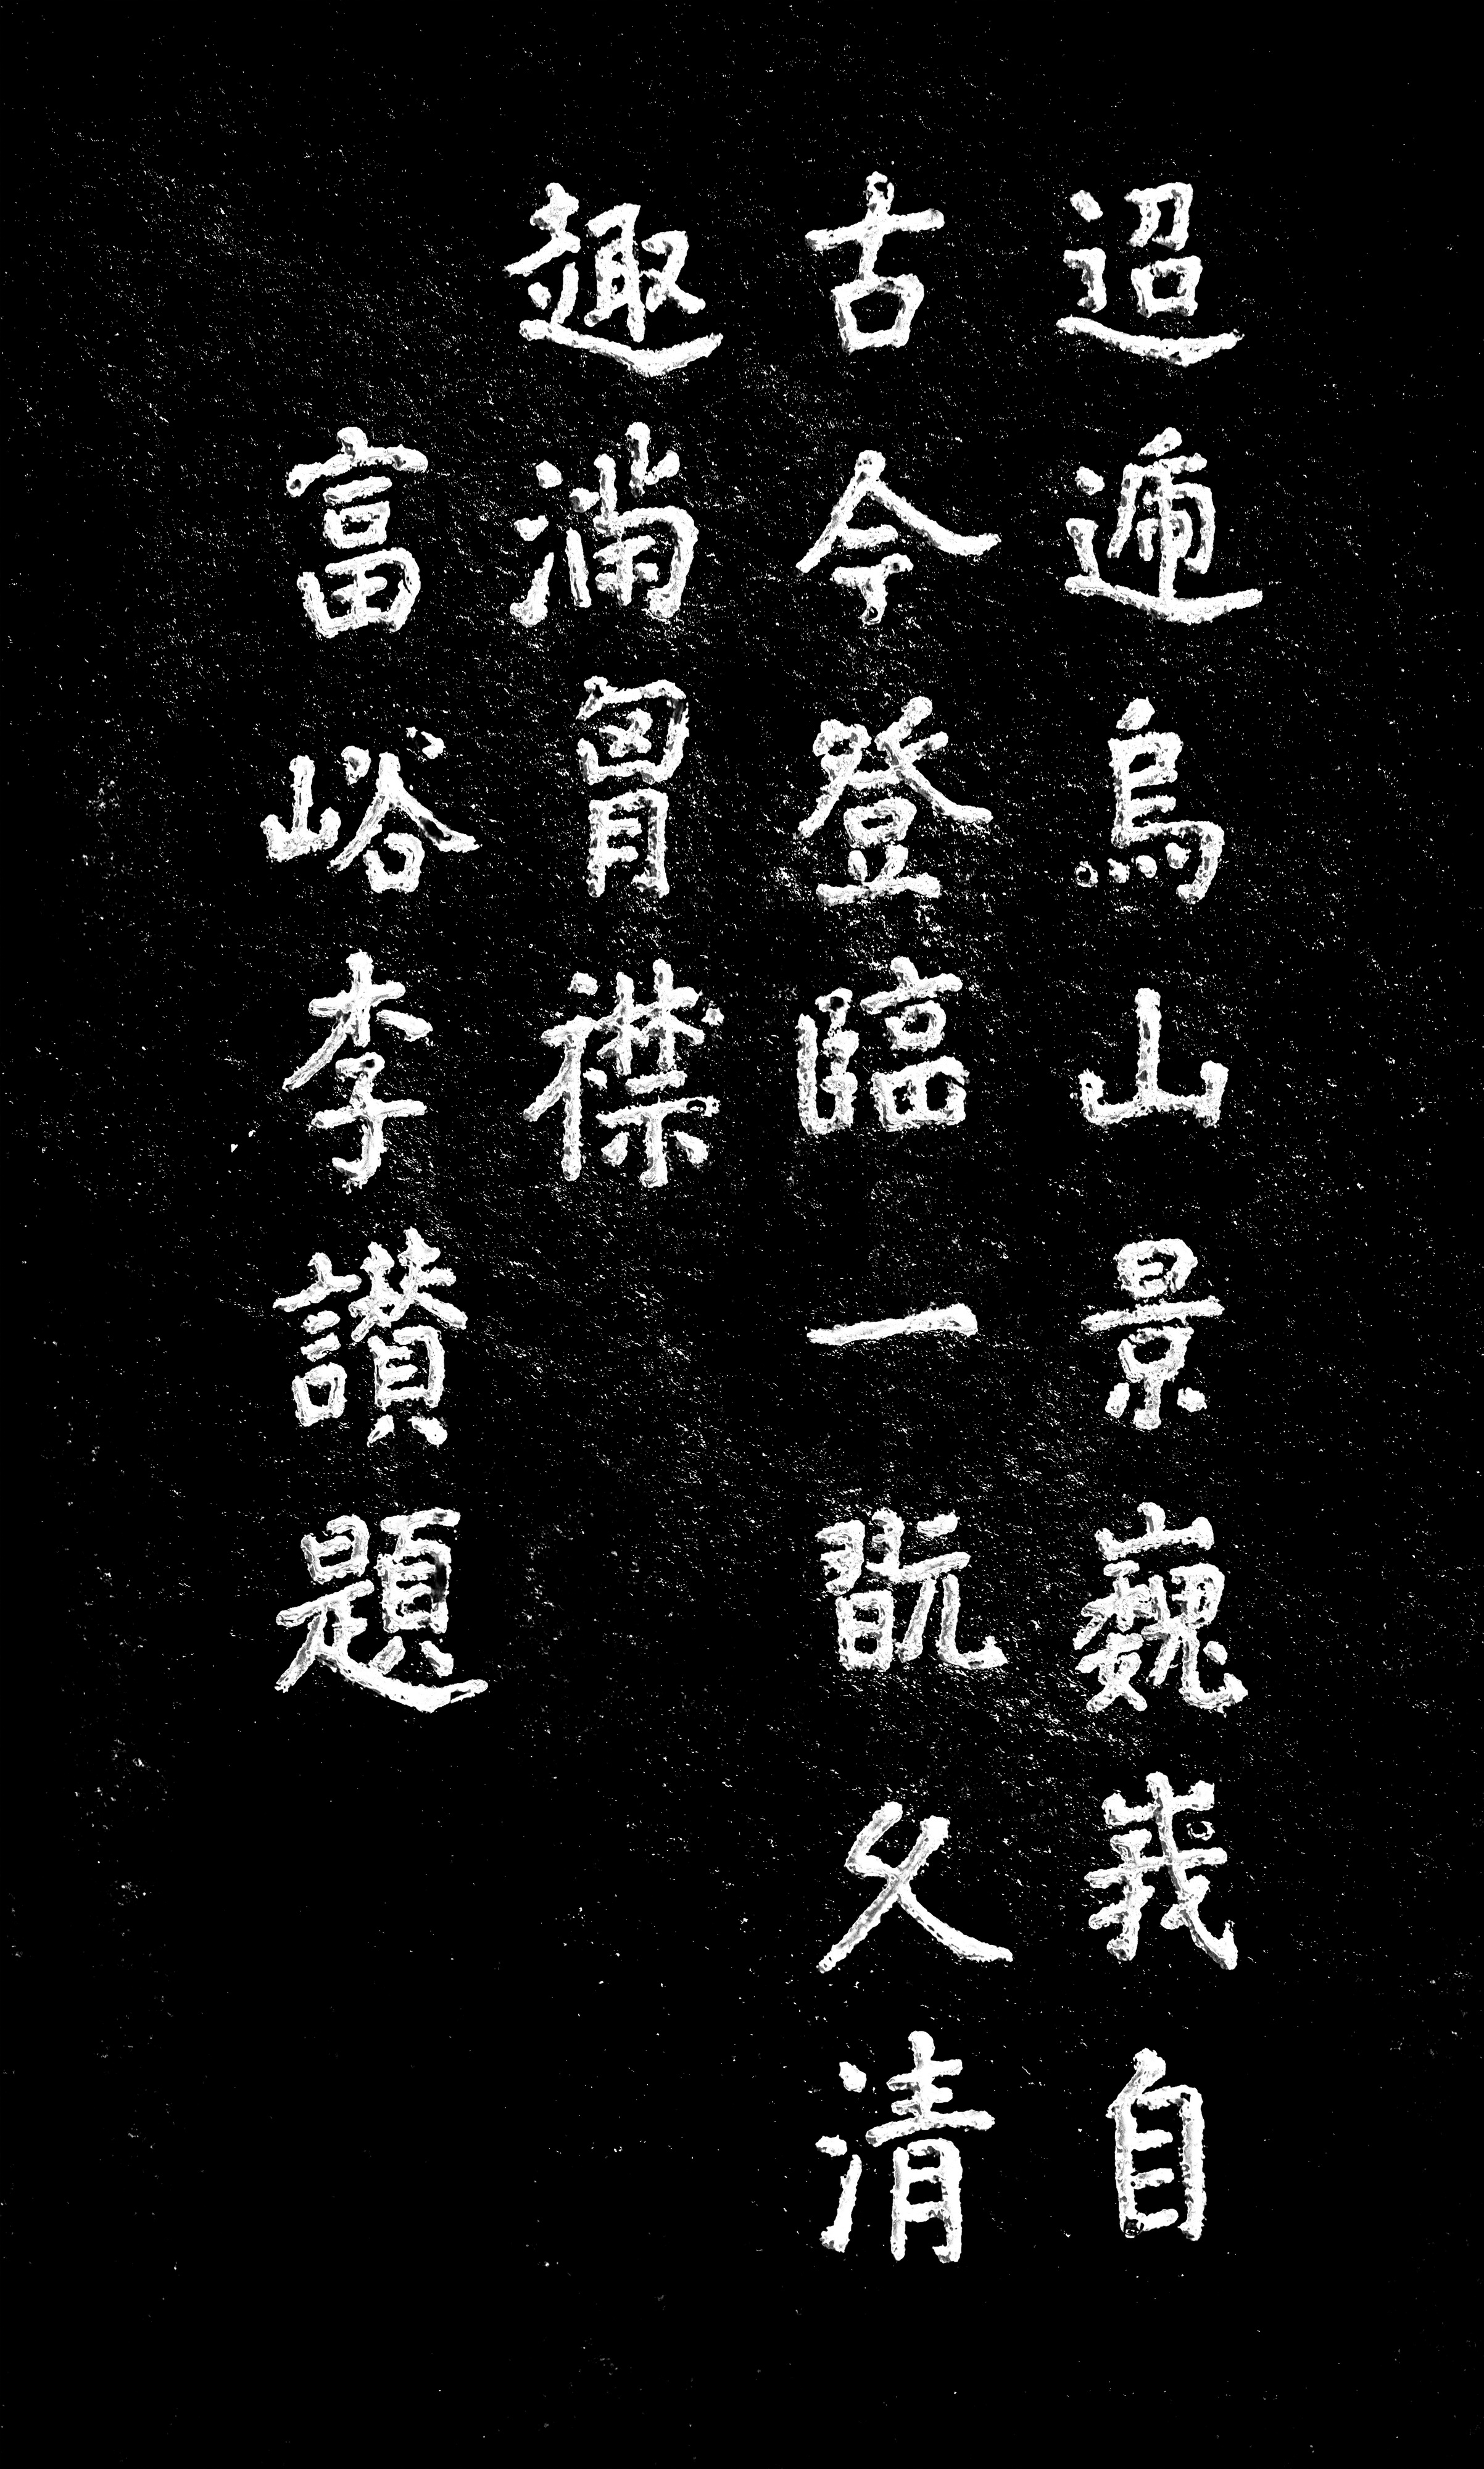 迢遞烏山景巍峩自
古今登臨一翫久清
趣滿胷襟
富峪李讚題